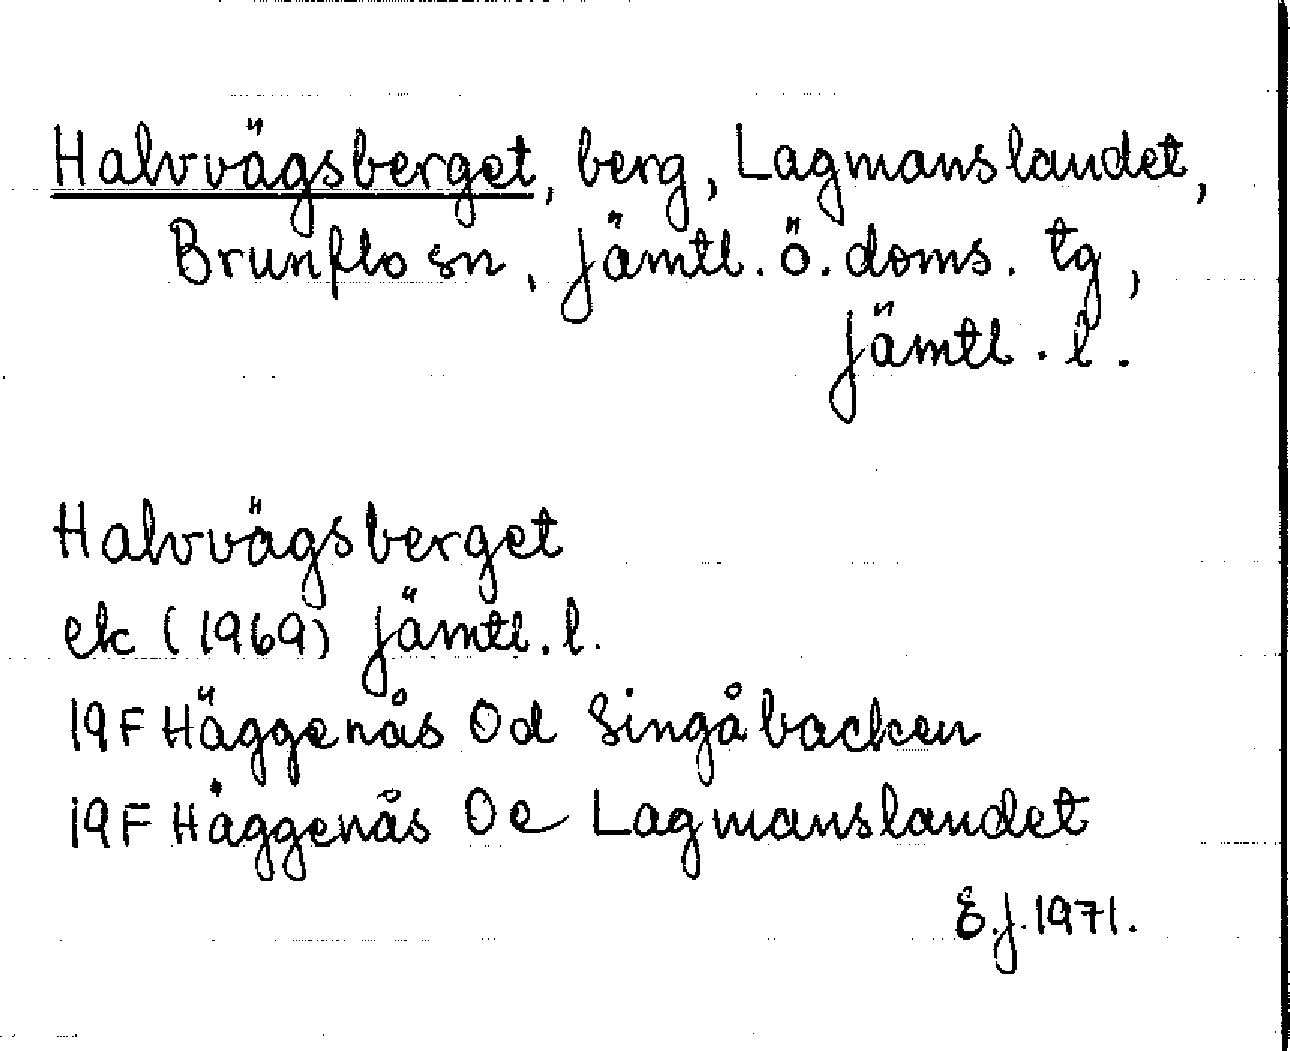 Halvvägsberget, berg, Lagmanslandet,
Brunflo sn, Jämtl. ö. doms. tg,
Jämtl. l.
Halvvägsberget
ek (1969) Jämtl. l.
19F Häggenås 0d Singåbacken
19F Häggenås 0e Lagmanslandet
E.J. 1971.